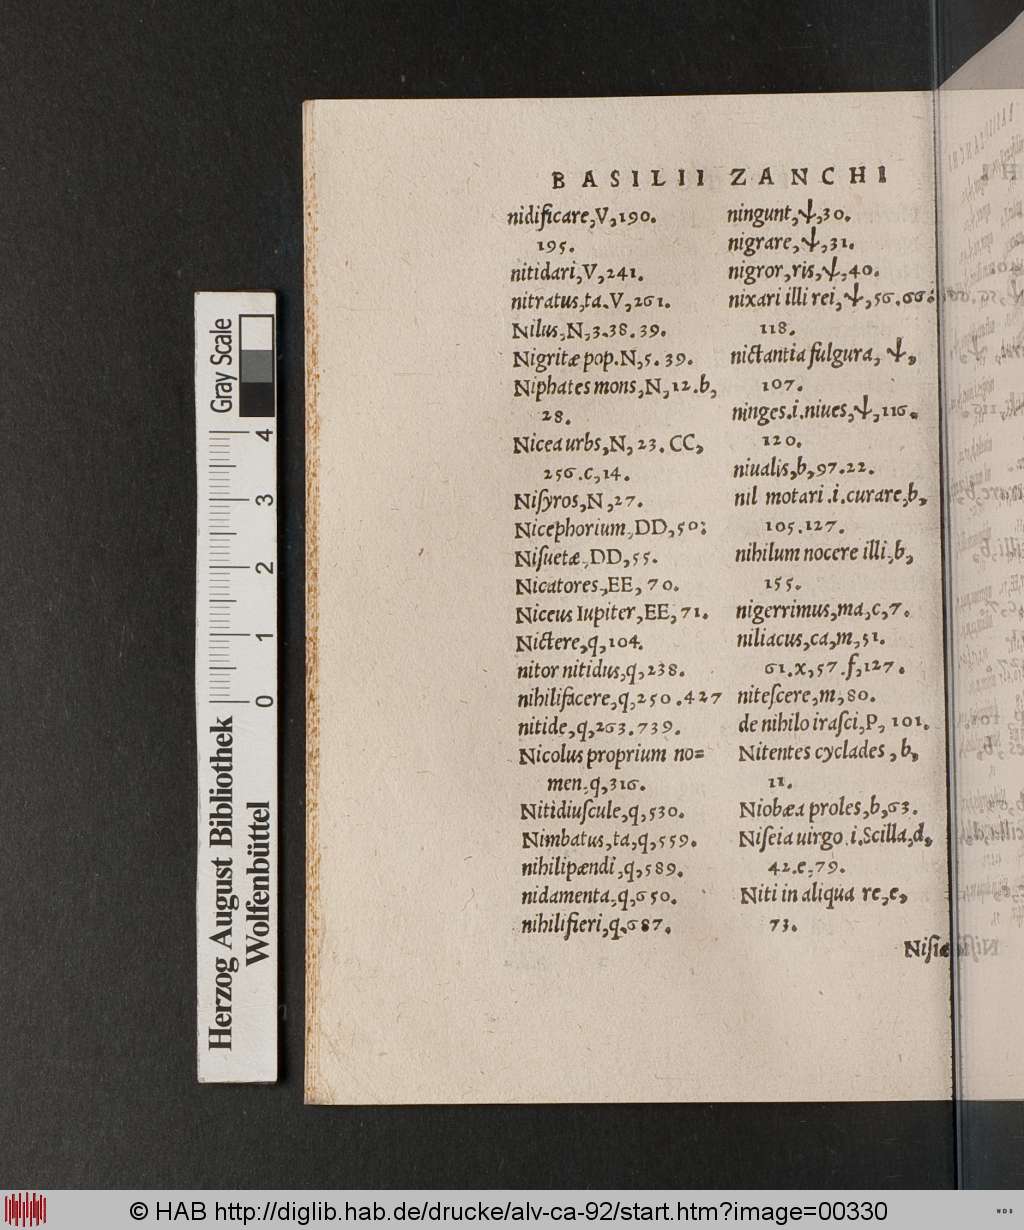 BASILII ZANCHI
nidificare,V,190.
195.
nitidari,V,241.
nitratus,ta.V,261.
Nilus,N,3.38.39.
Nigritæ pop.N,5.39.
Niphates mons,N,12.b,
28.
Nicea urbs,N,23.CC,
256.c,14.
Niſyros,N,27.
Nicephorium,DD,50:
Niſuetæ,DD,55.
Nicatores,EE,70.
Niceus Iupiter,EE,71.
Nictere,q,104.
nitor nitidus,q,238.
nihilifacere,q,250.427
nitide,q,263.739.
Nicolus proprium no=
men,q,316.
Nitidiuſcule,q,530.
Nimbatus,ta,q,559.
nihilipændi,q,589.
nidamenta,q,650.
nihilifieri,q,687.
ningunt,Ψ,30.
nigrare,Ψ,31.
nigror,ris,Ψ,40.
nixari illi rei,Ψ,56.66:
118.
nictantia fulgura,Ψ,
107.
ninges.i.niues,Ψ,116.
120.
niualis,b,97.22.
nil motari.i.curare,b,
105.127.
nihilum nocere illi,b,
155.
nigerrimus,ma,c,7.
niliacus,ca,m,51.
61.x,57.f,127.
niteſcere,m,80.
de nihilo iraſci,P,101.
Nitentes cyclades,b,
11.
Niobæa proles,b,63.
Niſeia uirgo.i.Scilla,d,
42.e,79.
Niti in aliqua re,e,
73.
Niſiæ
Gray Scale
4 3 2 1 0
Herzog August Bibliothek
Wolfenbüttel
© HAB http://diglib.hab.de/drucke/alv-ca-92/start.htm?image=00330
WDB